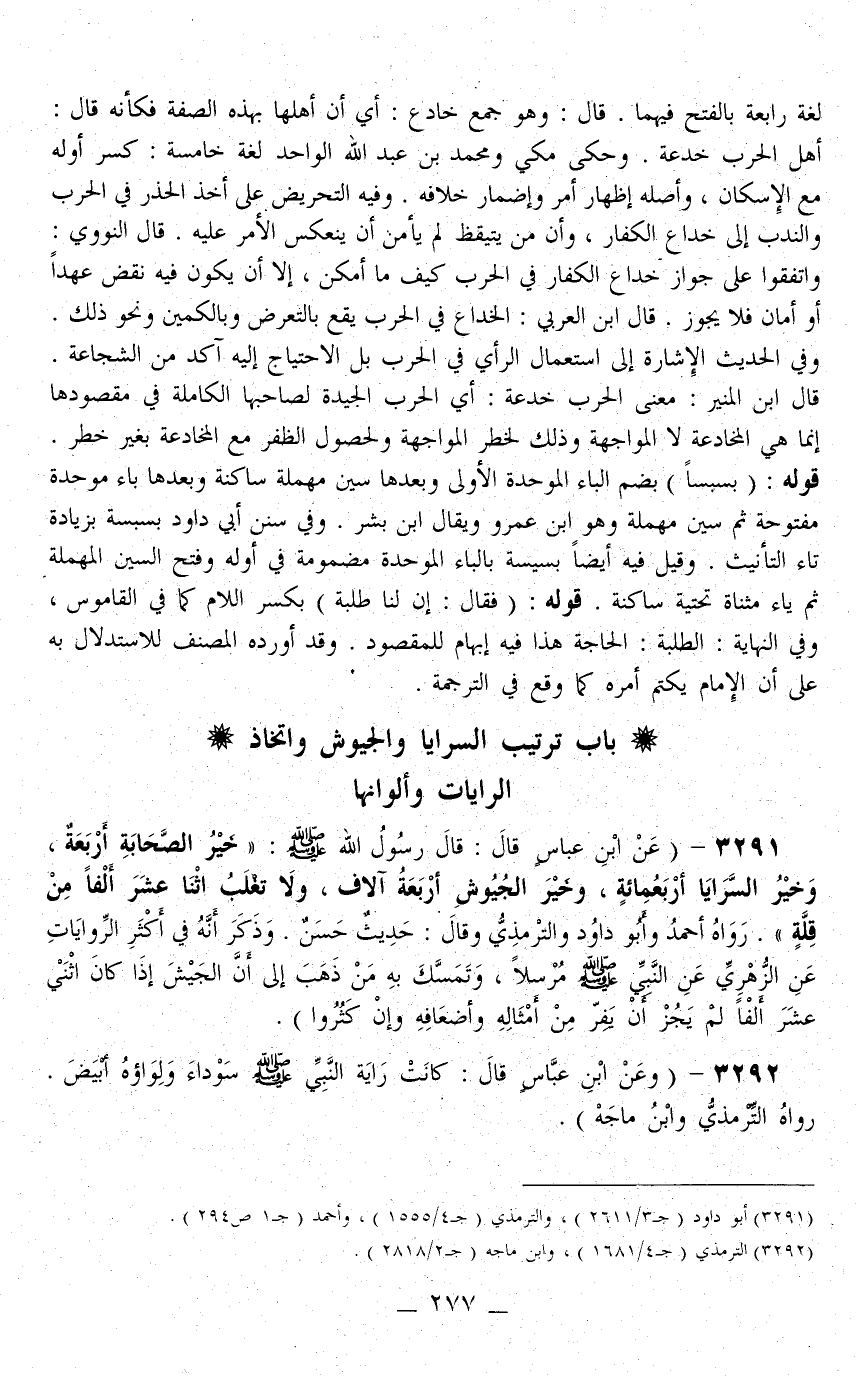 لغة رابعة بالفتح فيهما . قال : وهو جمع خادع : أي أن أهلها بهذه الصفة فكأنه قال :
أهل الحرب خدعة . وحكى مكي ومحمد بن عبد الله الواحد لغة خامسة : كسر أوله
مع الإسكان ، وأصله إظهار أمر وإضمار خلافه . وفيه التحريض على أخذ الحذر في الحرب
والندب إلى خداع الكفار ، وأن من يتيقظ لم يأمن أن ينعكس الأمر عليه . قال النووي :
واتفقوا على جواز خداع الكفار في الحرب كيف ما أمكن ، إلا أن يكون فيه نقض عهداً
أو أمان فلا يجوز . قال ابن العربي : الخداع في الحرب يقع بالتعرض وبالكمين ونحو ذلك .
وفي الحديث الإشارة إلى استعمال الرأي في الحرب بل الاحتياج إليه آكد من الشجاعة .
قال ابن المنير : معنى الحرب خدعة : أي الحرب الجيدة لصاحبها الكاملة في مقصودها
إنما هي المخادعة لا المواجهة وذلك لخطر المواجهة ولحصول الظفر مع المخادعة بغير خطر .
قوله : ( بسبساً ) بضم الباء الموحدة الأولى وبعدها سين مهملة ساكنة وبعدها باء موحدة
مفتوحة ثم سين مهملة وهو ابن عمرو ويقال ابن بشر . وفي سنن أبي داود بسبسة بزيادة
تاء التأنيث . وقيل فيه أيضاً بسيسة بالباء الموحدة مضمومة في أوله وفتح السين المهملة
ثم ياء مثناة تحتية ساكنة . قوله : ( فقال : إن لنا طلبة ) بكسر اللام كما في القاموس ،
وفي النهاية : الطلبة : الحاجة هذا فيه إبهام للمقصود . وقد أورده المصنف للاستدلال به
على أن الإمام يكتم أمره كما وقع في الترجمة .
✷ باب ترتيب السرايا والجيوش واتخاذ ✷
الرايات وألوانها
٣٢٩١ – ( عَنْ ابْنِ عباسٍ قالَ : قالَ رسُولُ الله ﷺ : « خَيْرُ الصَّحَابَةِ أَرْبَعَةٌ ،
وَخَيْرُ السَّرَايَا أرْبَعُمِائةٍ ، وخَيْرَ الجُيُوشِ أرْبَعَةُ آلاف ، ولَا تغْلَبُ اثْنَا عشَرَ أَلْفاً مِنْ
قِلَّةٍ » . رَوَاهُ أحمدُ وأَبُو داوُد والترْمذيُّ وقالَ : حَدِيثٌ حَسَنٌ . وَذَكَرَ أَنَّهُ في أَكْثَرِ الرِّوايَاتِ
عَنِ الزُّهْرِيِّ عَنِ النَّبِيِّ ﷺ مُرْسلاً ، وَتَمَسَّكَ بهِ مَنْ ذَهَبَ إلى أَنَّ الجَيْشَ إذَا كانَ اثْنَيْ
عشَرَ أَلْفاً لمْ يَجُزْ أَنْ يَفِرّ مِنْ أَمْثَالِهِ وأضعَافِهِ وإنْ كثُرُوا ) .
٣٢٩٢ – ( وعَنْ ابْنِ عبَّاسٍ قالَ : كانَتْ رَايَة النَّبِيِّ ﷺ سَوْداءَ وَلِوَاؤهُ أبْيَضَ .
رواهُ التِّرْمذيُّ وابْنُ ماجَهْ ) .
(٣٢٩١) أبو داود ( جـ٢٦١١/٣ ) ، والترمذي ( جـ١٥٥٥/٤ ) ، وأحمد ( جـ١ ص٢٩٤ ) .
(٣٢٩٢) الترمذي ( جـ١٦٨١/٤ ) ، وابن ماجه ( جـ٢٨١٨/٢ ) .
– ٢٧٧ –